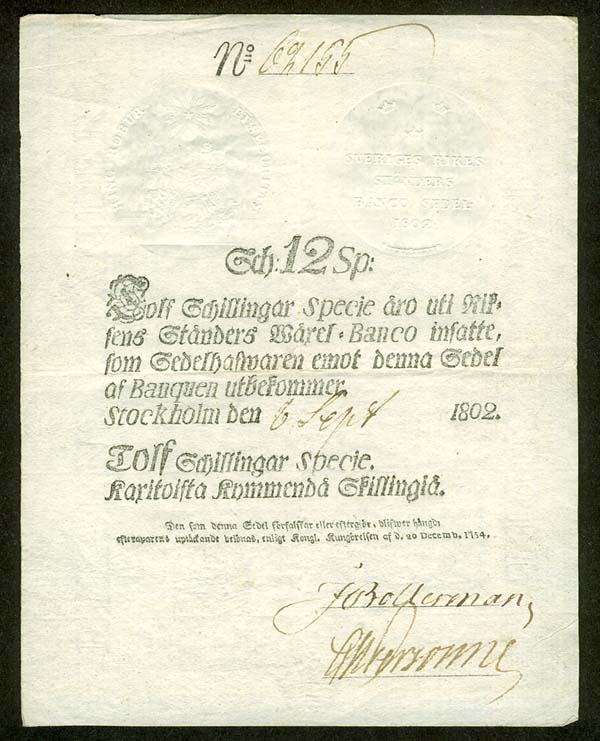 No 62155
HINC ROBUR
SVERIGES RIKES
STÄNDERS
BANCO SEDEL
1802
Sch: 12 Sp:
Tolf Schillingar Specie äro uti Rik-
sens Ständers Wäxel-Banco insatte,
som Sedelhafwaren emot denna Sedel
af Banquen utbekommer.
Stockholm den 6 Sept 1802.
Tolf Schillingar Specie.
Kaxitoista Kymmendä Skillingiä.
Den som denna Sedel förfalskar eller eftergör, blifwer hängd;
efteraparens uptäckande belönad, enligt Kongl. Kungörelsen af d. 20 Decemb. 1754.